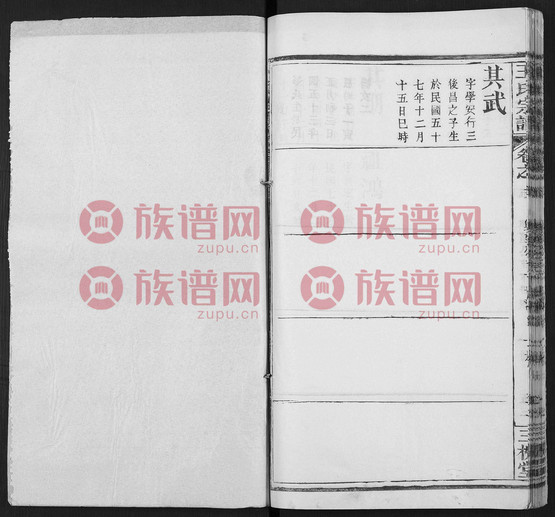 其武
字學安行三
後昌之子生
於民國五十
七年十二月
十五日巳時
王氏宗譜
三槐堂
族谱网
zupu.cn
族谱网
zupu.cn
族谱网
zupu.cn
族谱网
zupu.cn